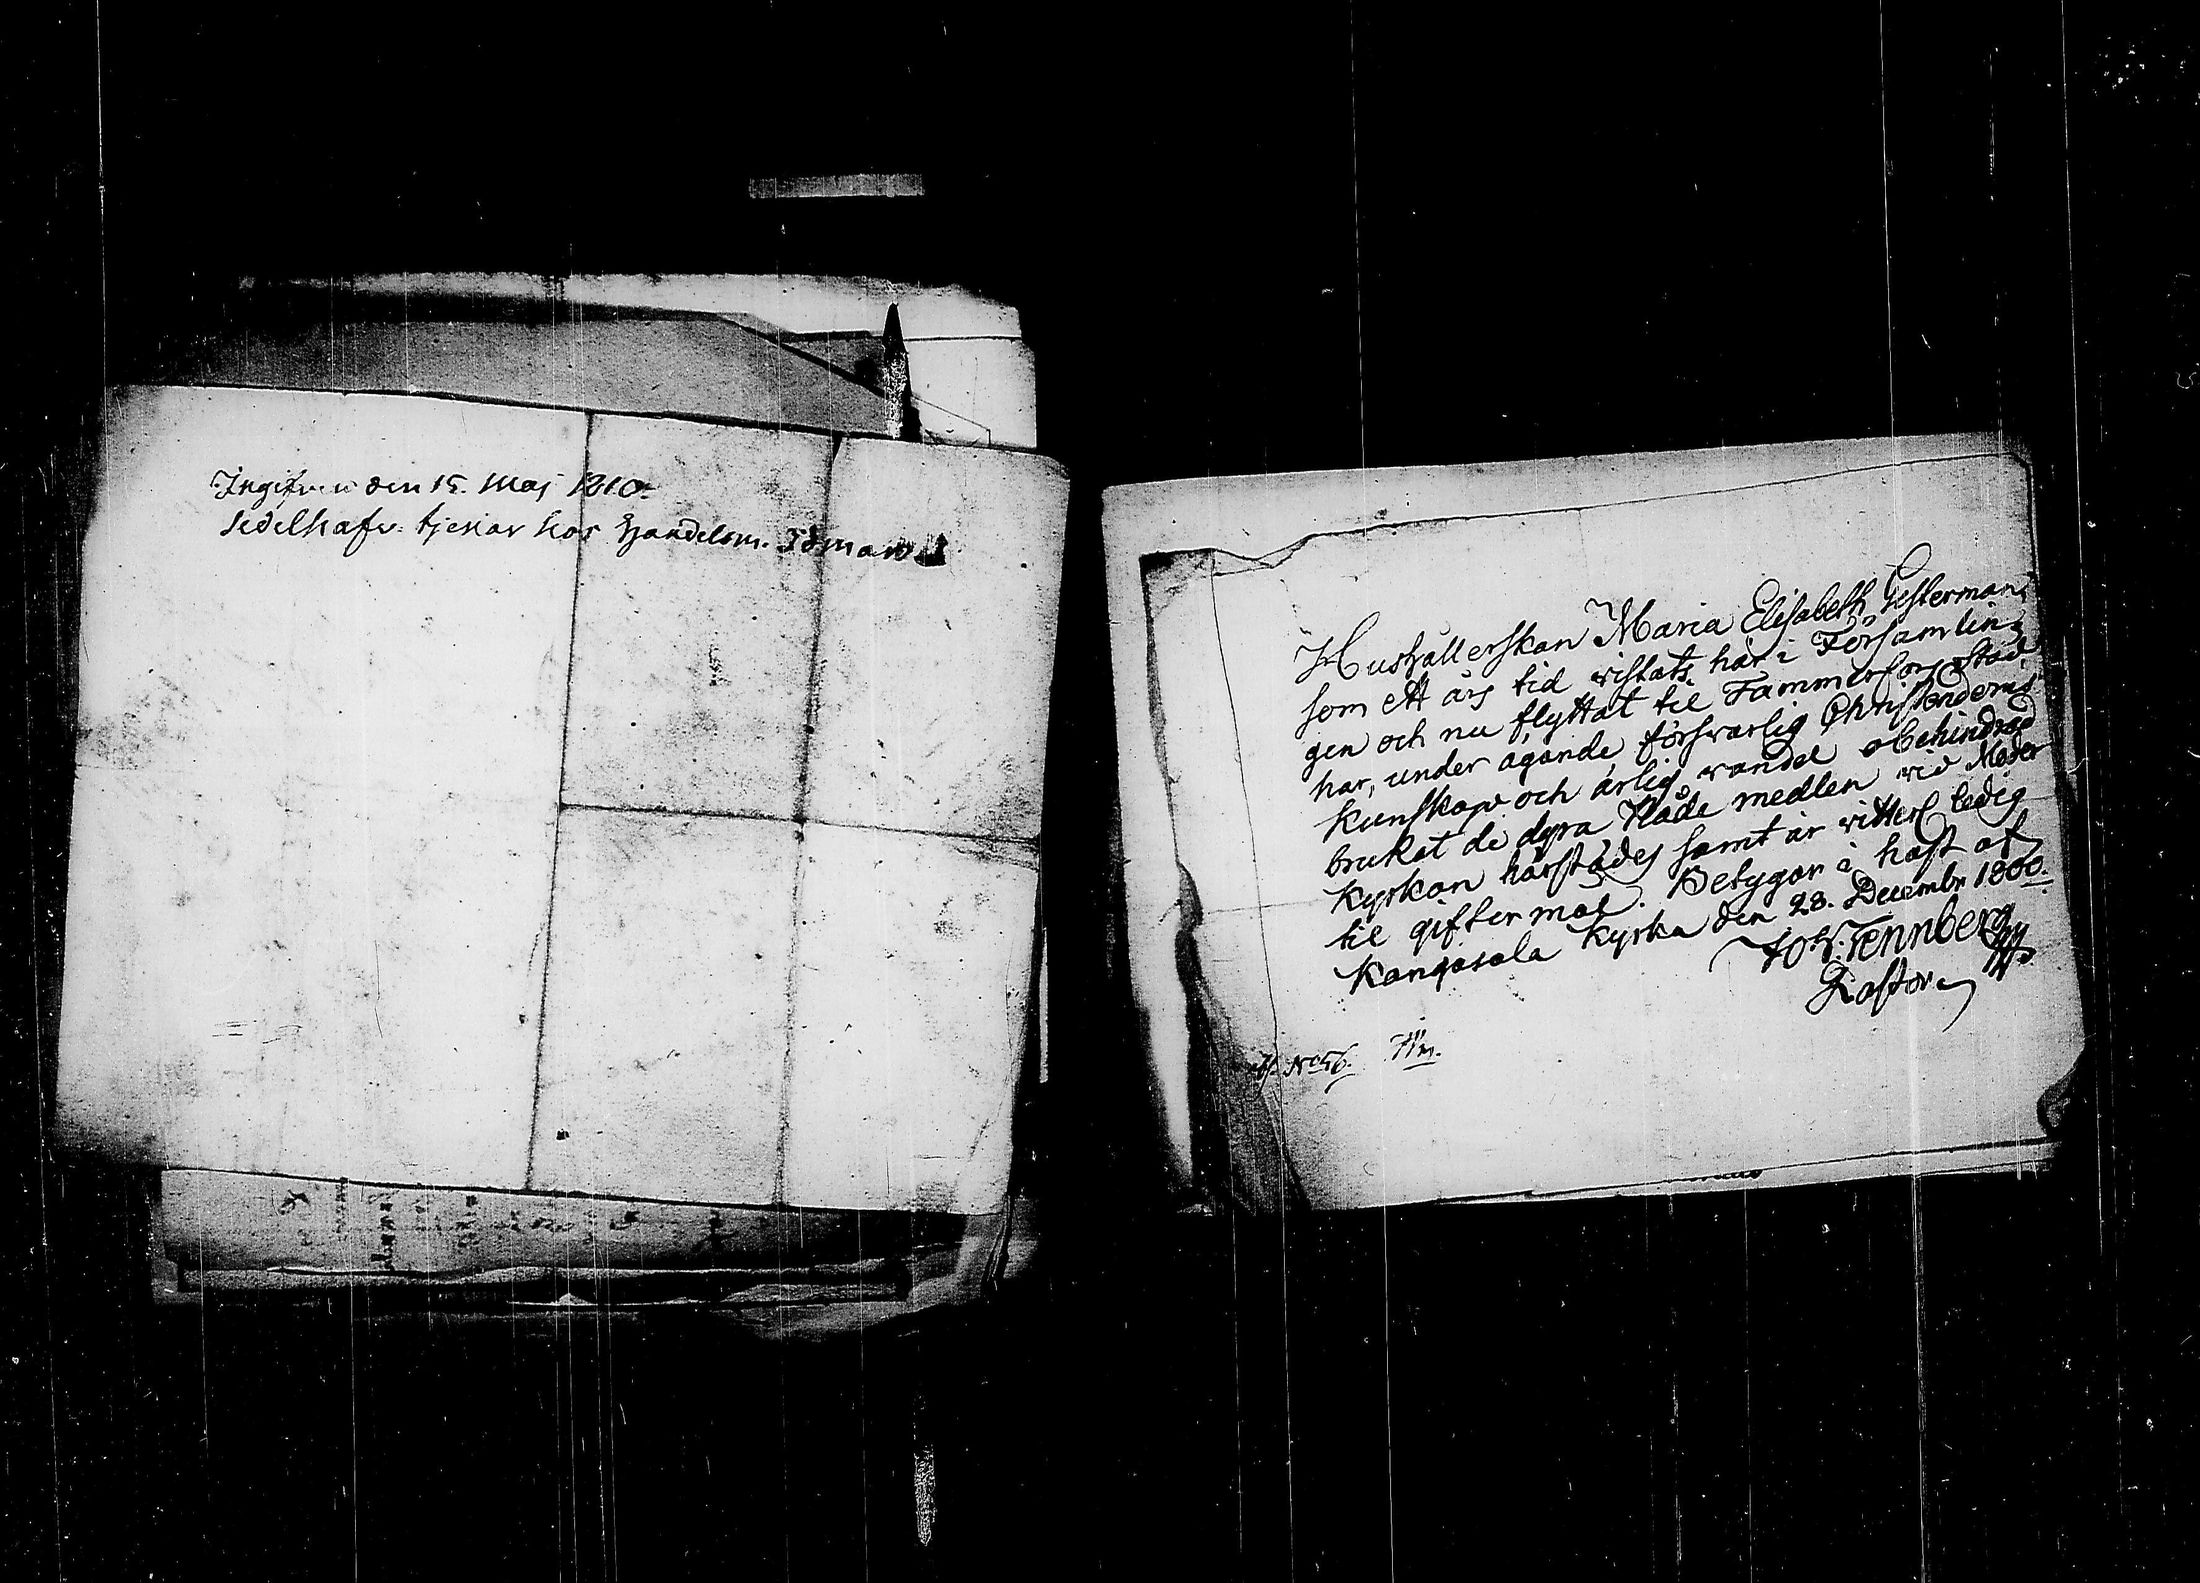 Ingifven den 15. Maj 1810.
sedelhafv. tjenar hos Handelsm. Tdman
Hushållerskan Maria Elisabeth Gesterman,
som ett års tid vistats här i Församlin-
gen och nu flyttat til Tammerfors stad,
har, under ägande försvarlig Christendoms
kunskap och ärlig vandel obehindrad
brukat de dyra Nåde medlen vid Moder
Kyrkan härstädes samt är vitterl. ledig
til giftermål. Betygar i hast af
Kangasala Kyrka den 28. Decembr 1800.
Joh. Tennberg
Pastor
No 56.